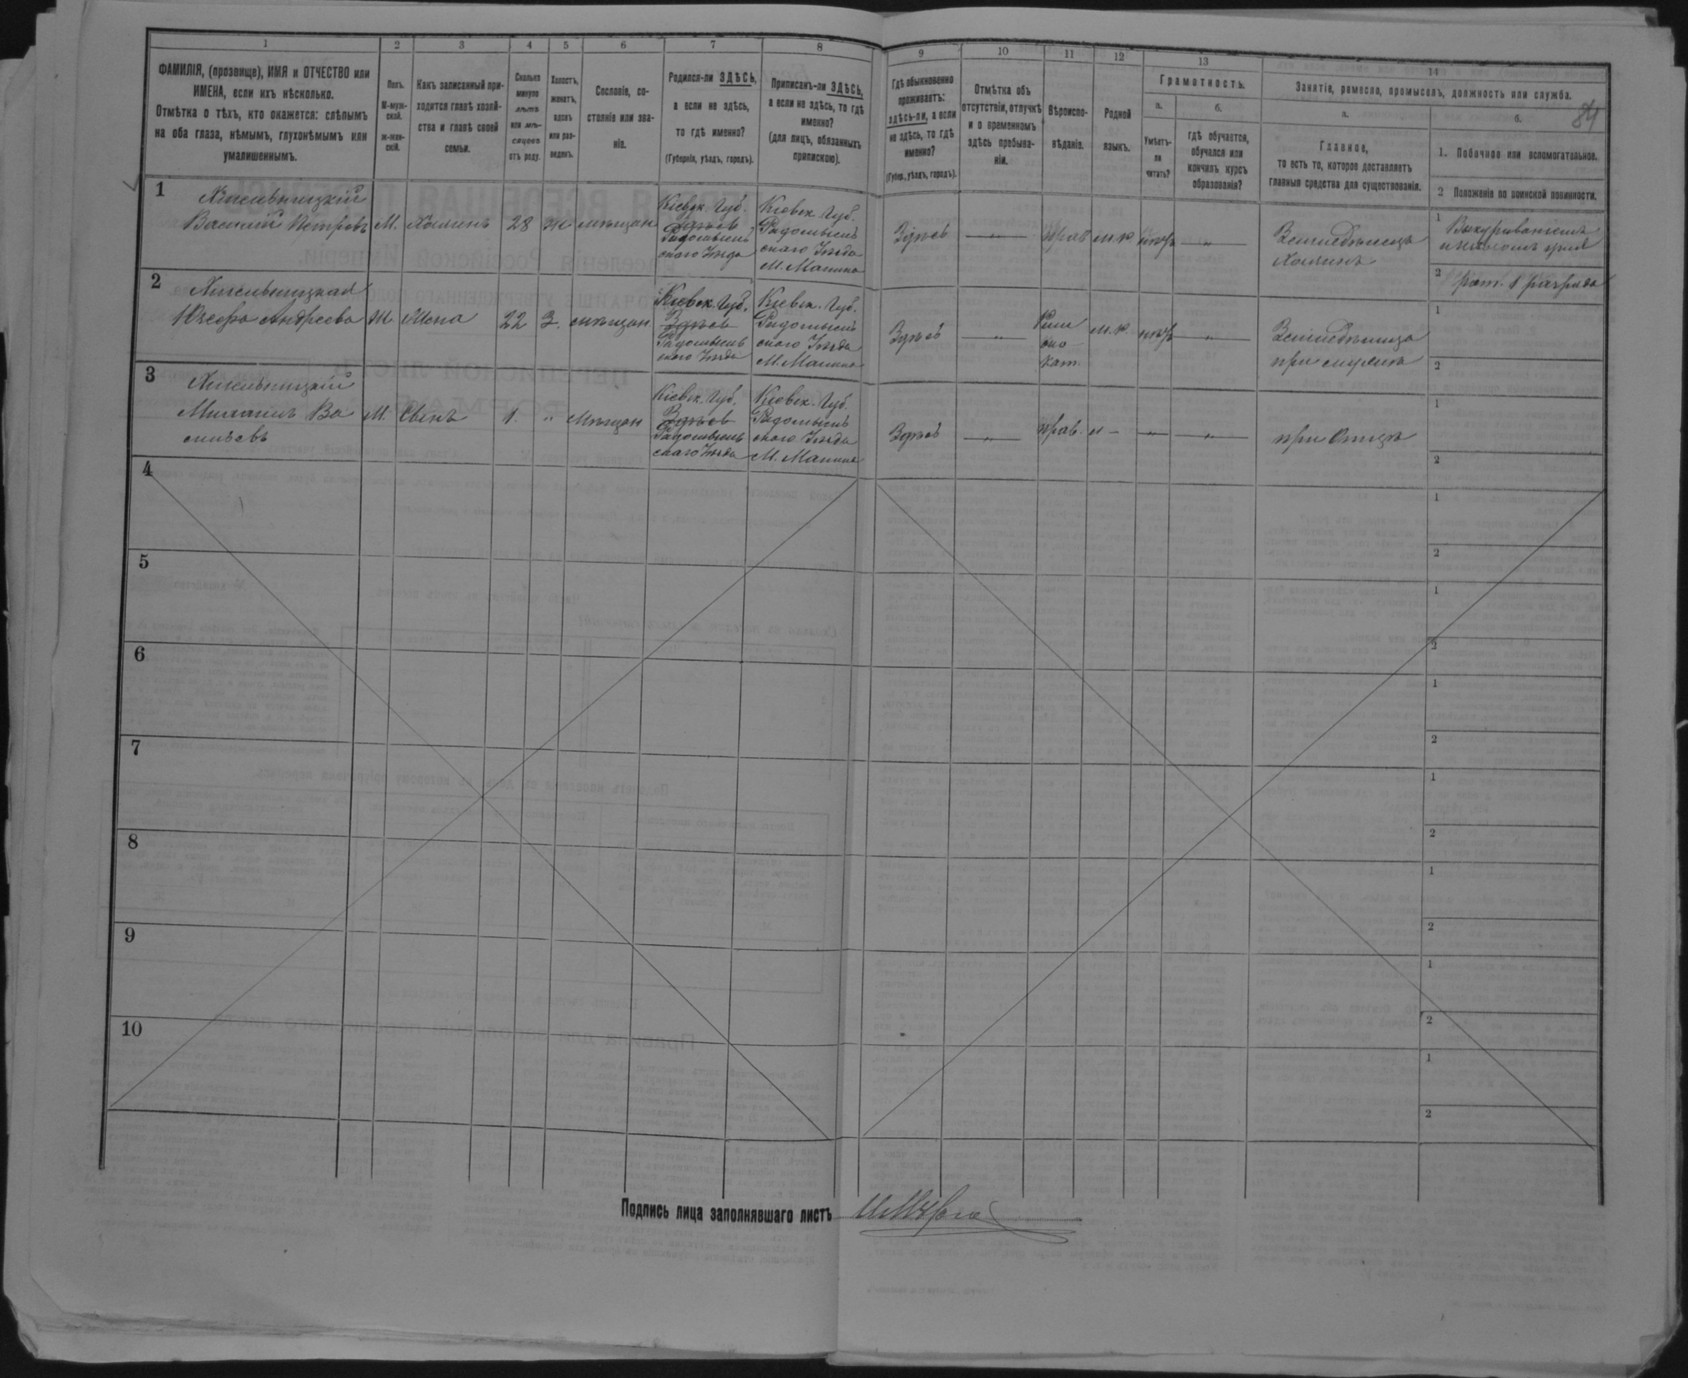 84
1 2 3 4 5 6 7 8 9 10 11 12 13 14
ФАМИЛІЯ, (прозвище), ИМЯ и ОТЧЕСТВО или
ИМЕНА, если ихъ нѣсколько.
Отмѣтка о тѣхъ, кто окажется: слѣпымъ
на оба глаза, нѣмымъ, глухонѣмымъ или
умалишеннымъ.
Полъ.
М-муж-
ской.
Ж-жен-
скій.
Какъ записанный при-
ходится главѣ хозяй-
ства и главѣ своей
семьи.
Сколько
минуло
лѣтъ
или мѣ-
сяцевъ
отъ роду.
Холостъ,
женатъ,
вдовъ
или раз-
веденъ.
Сословіе, со-
стояніе или зва-
ніе.
Родился-ли ЗДѢСЬ,
а если не здѣсь,
то гдѣ именно?
(Губернія, уѣздъ, городъ).
Приписанъ-ли ЗДѢСЬ,
а если не здѣсь, то гдѣ
именно?
(для лицъ, обязанныхъ
припискою).
Гдѣ обыкновенно
проживаетъ:
здѣсь-ли, а если
не здѣсь, то гдѣ
именно?
(Губер., уѣздъ, городъ).
Отмѣтка объ
отсутствіи, отлучкѣ
и о временномъ
здѣсь пребыва-
ніи.
Вѣроиспо-
вѣданіе.
Родной
языкъ.
Грамотность.
а.
Умѣетъ-
ли
читать?
б.
гдѣ обучается,
обучался или
кончилъ курсъ
образованія?
Занятіе, ремесло, промыселъ, должность или служба.
а.
Главное,
то есть то, которое доставляетъ
главныя средства для существованія.
б.
1. Побочное или вспомогательное.
2 Положеніе по воинской повинности.
1
Василій Петровъ М. Хозяинъ 28 ж мѣщан
Кіевск. Губ.
Радомысль
скаго Уѣзда
Кіевск. Губ.
Радомысль
скаго Уѣзда
М. Малина
Здѣсь
прав
Хозяинъ
1
2 рат. 1 разряда
2
Андреева Ж Жена 22 З. мѣщан
Кіевск. Губ.
Здѣсь
Радомысль
скаго Уѣзда
Кіевск. Губ.
Радомысль
скаго Уѣзда
М. Малина
Здѣсь
Рим
ско
кат.
при мужѣ
1
2
3
Михаилъ Ва
сильевъ
М. Сынъ 1 " Мѣщан
Кіевск. Губ.
Здѣсь
Радомысль
скаго Уѣзда
Кіевск. Губ.
Радомысль
скаго Уѣзда
М. Малина
Здѣсь
прав.
при Отцѣ
1
2
4
1
2
5
1
2
6
1
2
7
1
2
8
1
2
9
1
2
10
1
2
Подпись лица заполнявшаго листъ